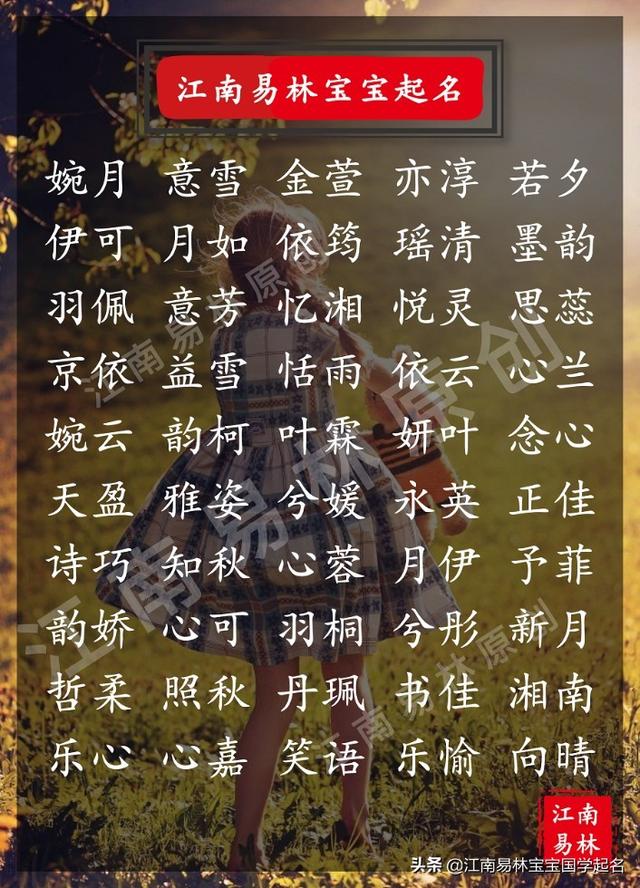 江南易林宝宝起名
婉月 意雪 金萱 亦淳 若夕
伊可 月如 依筠 瑶清 墨韵
羽佩 意芳 忆湘 悦灵 思蕊
京依 益雪 恬雨 依云 心兰
婉云 韵柯 叶霖 妍叶 念心
天盈 雅姿 兮媛 永英 正佳
诗巧 知秋 心蓉 月伊 予菲
韵娇 心可 羽桐 兮彤 新月
哲柔 照秋 丹珮 书佳 湘南
乐心 心嘉 笑语 乐愉 向晴
江南易林原创
江南易林原创
江南易林原创
江南
易林
头条 @江南易林宝宝国学起名